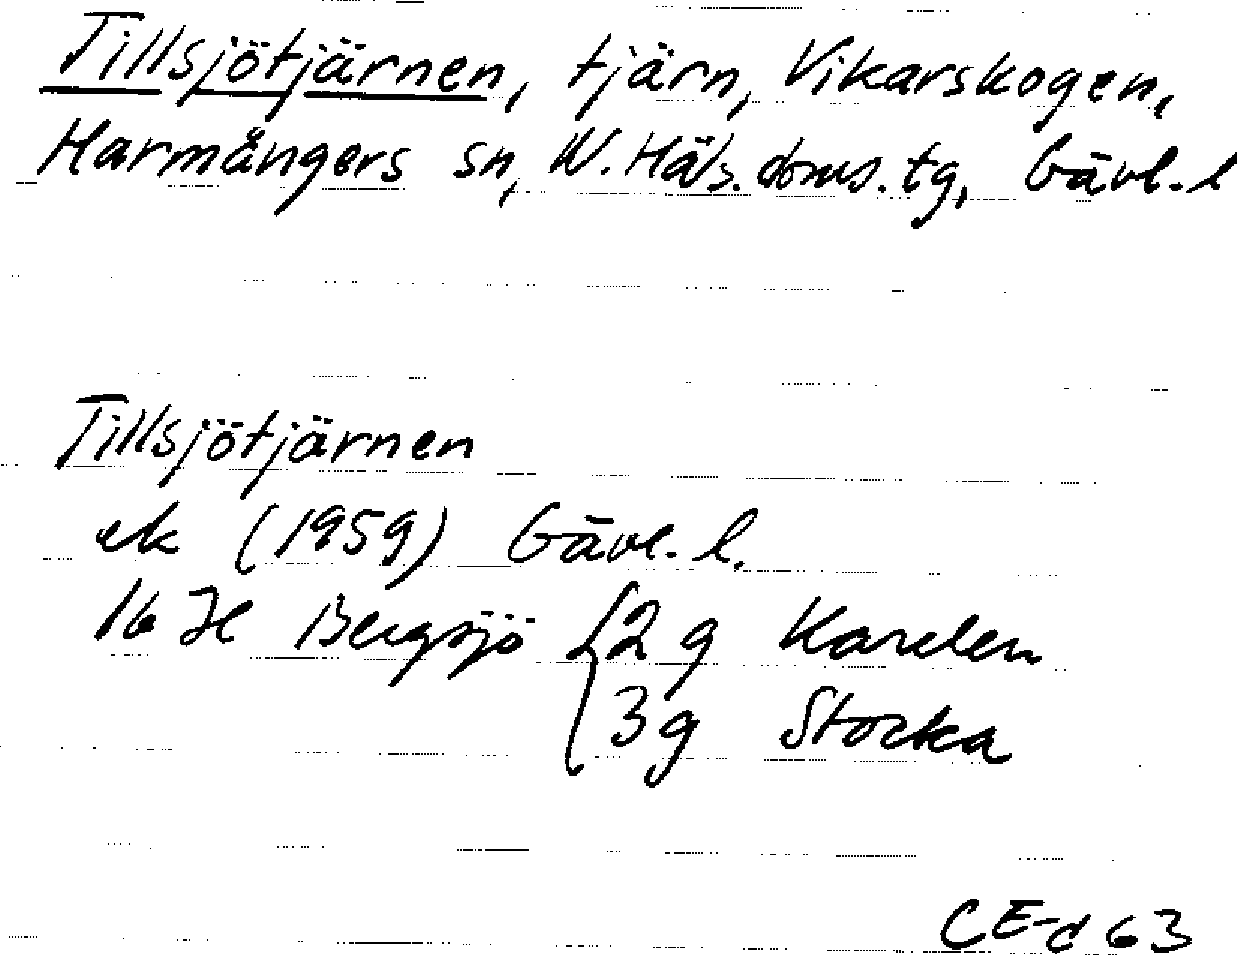 Tillsjötjärnen, tjärn, Vikarskogen,
Harmångers sn, N. Häls. doms. tg, Gävl. l
Tillsjötjärnen
ek (1959) Gävl. l.
16 H Bergsjö { 2 g Karelen
3 g Stocka
CE-d 63